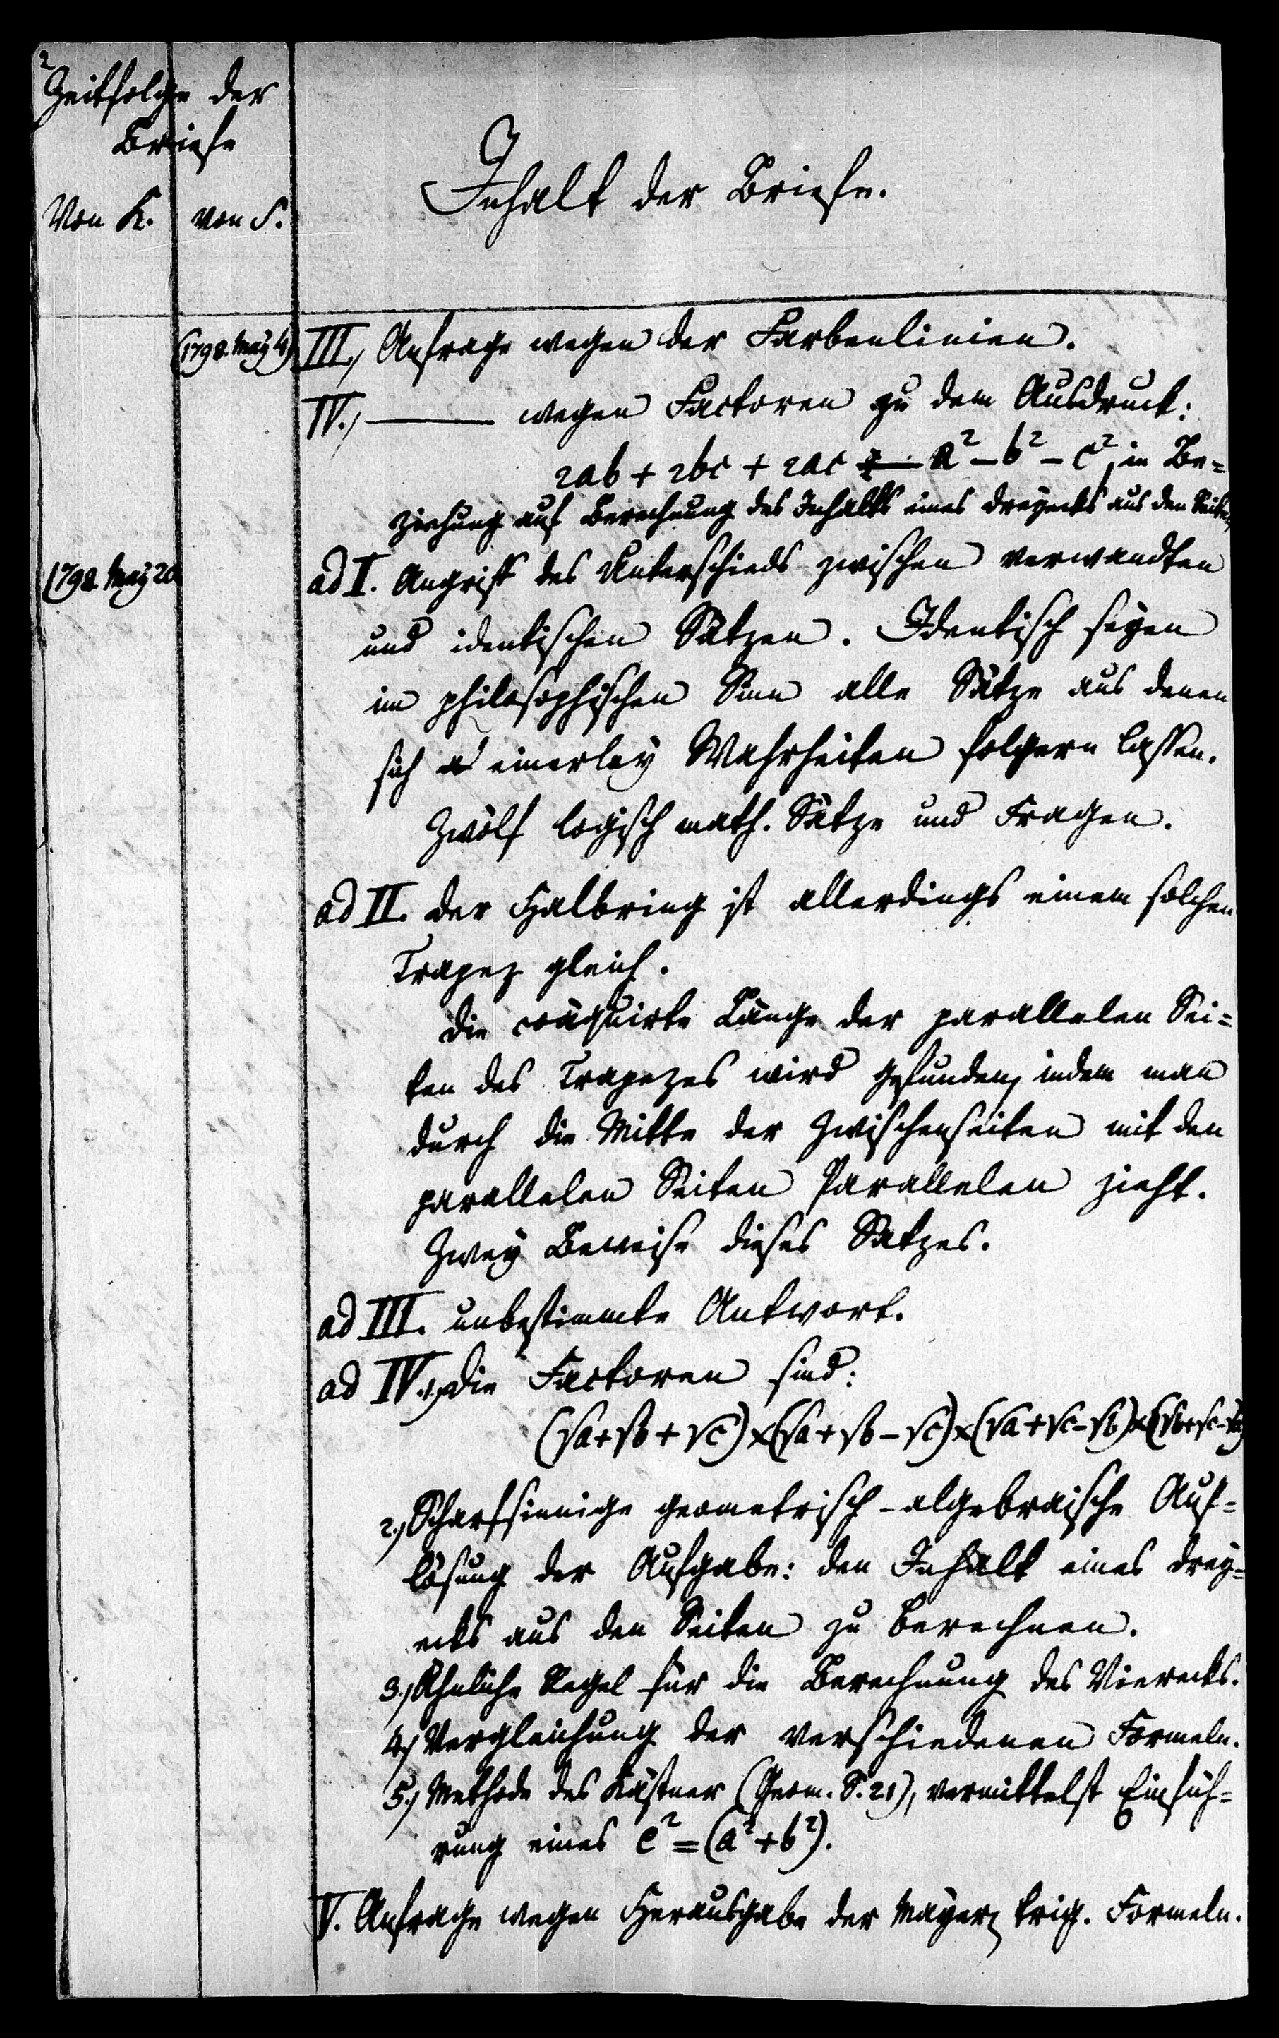 2
Zeitfolge der
Briefe
Von K. von S.
Inhalt der Briefe.
(1798. May 4) III., Anfrage wegen der Farbenlinien.
IV., ——— wegen Factoren zu dem Ausdruck:
2ab + 2bc + 2ac - a² - b² - c², in Be-
ziehung auf Berechnung des Inhalts eines Dreyecks aus den Seiten.
1798. May 20 ad I. Angriff des Unterschieds zwischen verwandten
und identischen Sätzen. Identisch seyen
im philosophischen Sinn alle Sätze aus denen
sich einerley Wahrheiten folgern lassen.
Zwölf logisch math. Sätze und Fragen.
ad II. Der Halbring ist allerdings einem solchen
Trapez gleich.
Die coäquirte Länge der parallelen Sei-
ten des Trapezes wird gefunden, indem man
durch die Mitte der Zwischenseiten mit den
parallelen Seiten Parallelen zieht.
Zwey Beweise dieses Satzes.
ad III. unbestimmte Antwort.
ad IV. 1., Die Factoren sind:
(√a+√b+√c)×(√a+√b-√c)×(√a+√c-√b)×(√b+√c-√a)
2., Scharfsinnige geometrisch-algebraische Auf-
lösung der Aufgabe: den Inhalt eines Drey-
ecks aus den Seiten zu berechnen.
3., Ähnliche Regel für die Berechnung des Vierecks.
4., Vergleichung der verschiedenen Formeln.
5., Methode des Kästner (Geom. S. 21), vermittelst Einfüh-
rung eines c² = (a² + b²).
V. Anfrage wegen Herausgabe der Mayer. trig. Formeln.